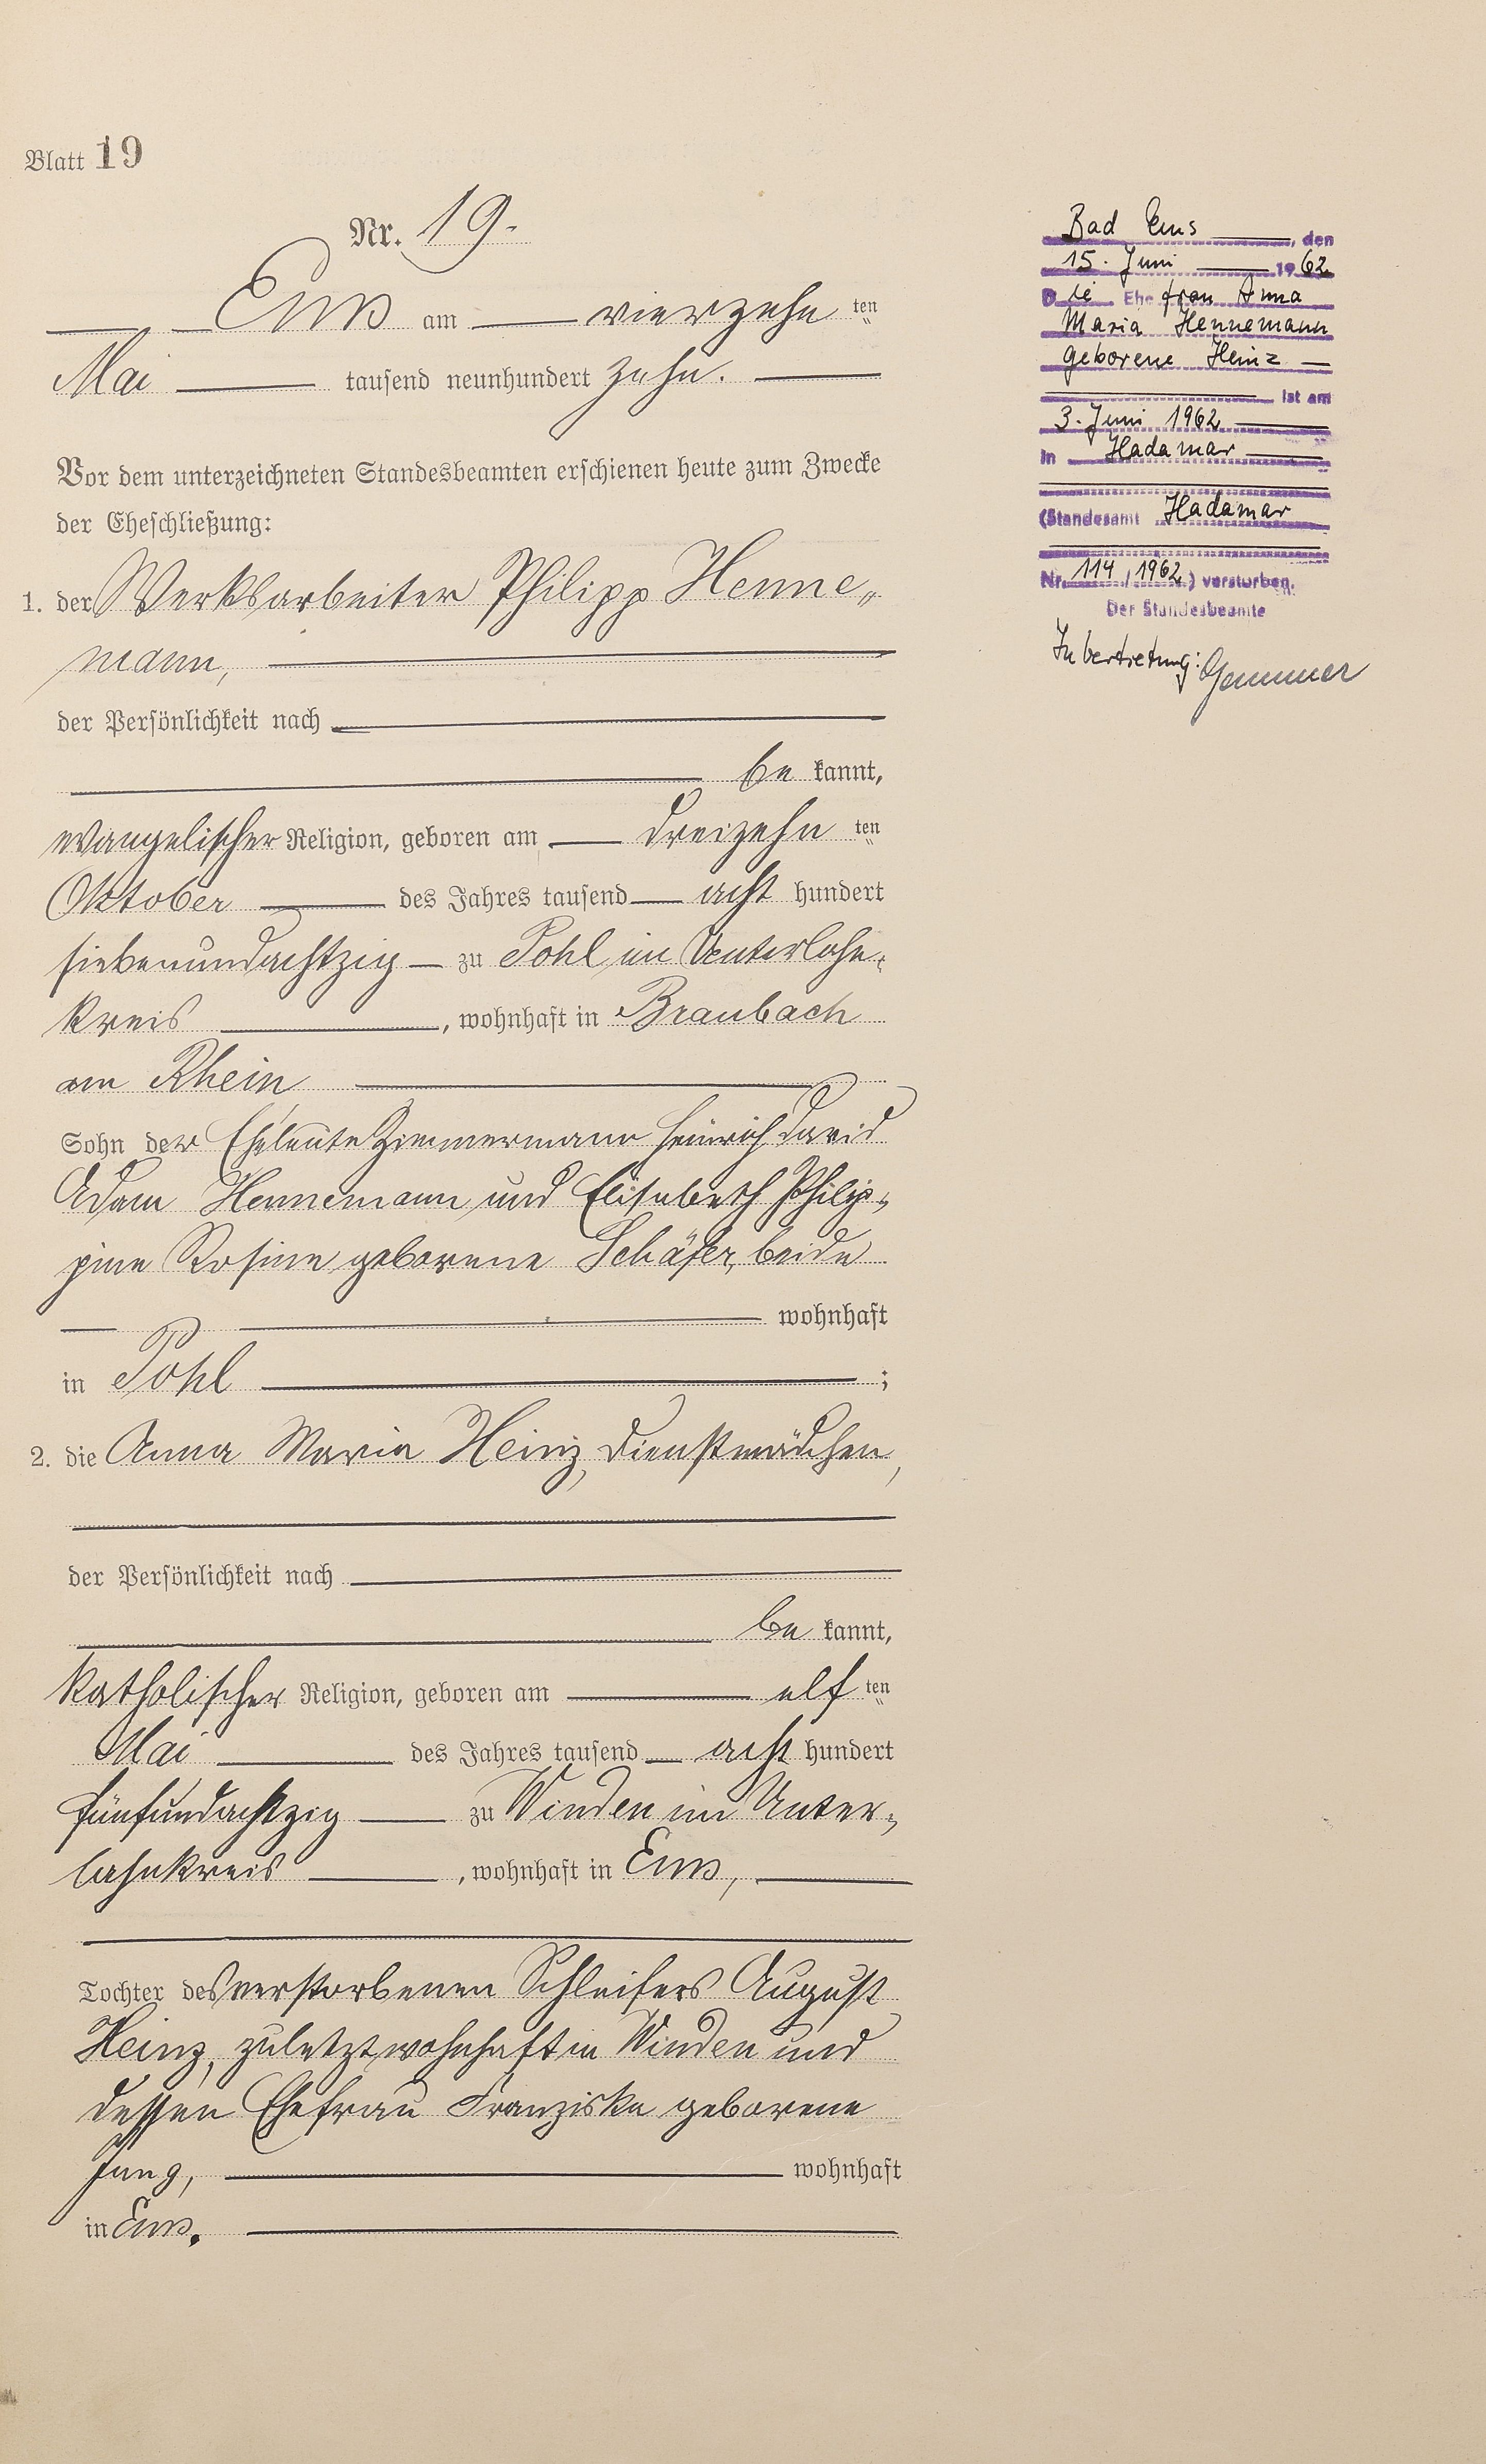 Blatt 19
Nr. 19.
Ems am vierzehn ten
Mai tausend neunhundert zehn.
Vor dem unterzeichneten Standesbeamten erschienen heute zum Zwecke
der Eheschließung:
1. der Werksarbeiter Philipp Henne„
mann,
der Persönlichkeit nach
be kannt,
evangelischer Religion, geboren am dreizehn ten
Oktober des Jahres tausend acht hundert
siebenundachtzig zu Pohl im Unterlahn„
kreis, wohnhaft in Braubach
am Rhein
Sohn der Eheleute Zimmermann Heinrich David
Adam Hennemann und Elisabeth Philip„
pine Rosine geborene Schäfer, beide
wohnhaft
in Pohl ;
2. die Anna Maria Heinz, Dienstmädchen,
der Persönlichkeit nach
be kannt,
katholischer Religion, geboren am elf ten
Mai des Jahres tausend acht hundert
fünfundachtzig zu Winden im Unter„
lahnkreis, wohnhaft in Ems,
Tochter des verstorbenen Schleifers August
Heinz, zuletzt wohnhaft in Winden und
dessen Ehefrau Franziska geborene
Jung, wohnhaft
in Ems.
Bad Ems, den
15. Juni 1962
Die Ehefrau Anna
Maria Hennemann
geborene Heinz
ist am
3. Juni 1962
in Hadamar
(Standesamt Hadamar
Nr. 114 / 1962) verstorben.
Der Standesbeamte
In Vertretung: Gemmer